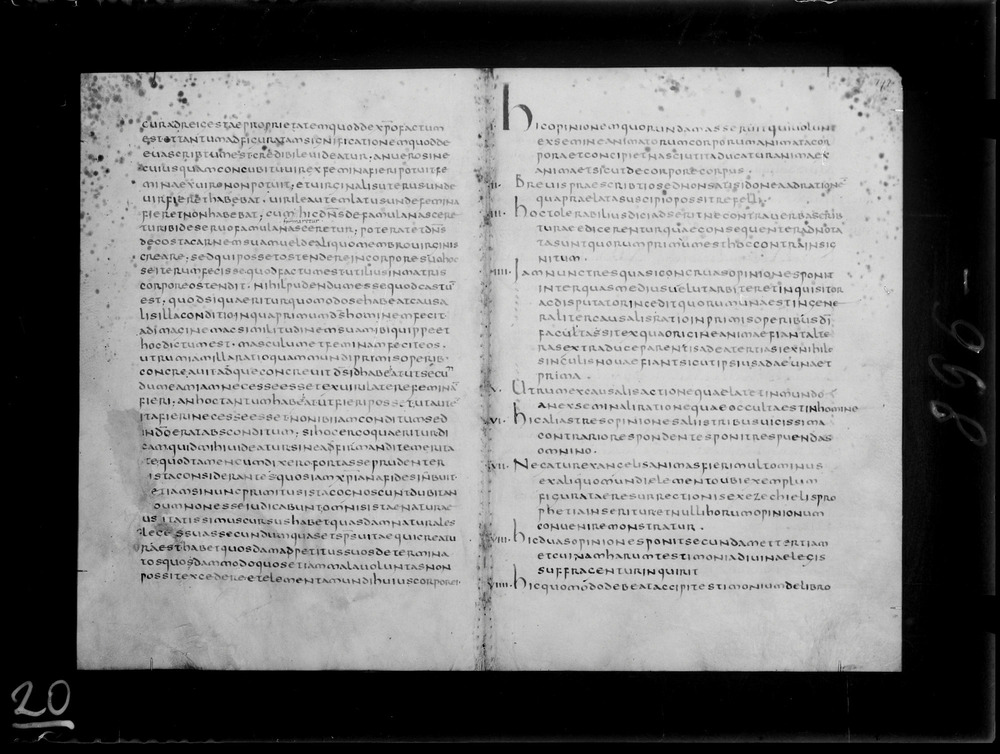 curadreicestaeproprietatemquoddexp̄ofactum
estottantumadficuratamsicnificationemquodde
evascriptumestcredibilevideatur·anuerosine
cuiusquamconcubituvirexfeminafieripotuitfe
minaexvirononpotuit,etvirginalisuterusunde
virfierethabebat·virileautemlatusundefemina
fieretnonhabebat,cumhicdn̄sdefamulanascere
turibideseruofamulanasceretur,poteratetdn̄s
decostacarnemsuamueldealiquomembrovirginis
creare,sedquipossetostendereincorporesuohoc
seiterumfecissequodfactumestutiliusinmatris
corporeostendit·nihilpudendumessequodcastū
est·quodsiquaeriturquomodosehabeatcausa
lisillaconditioinquaprimumd̄shominemfecit
adimaginemacsimilitudinemsuamibiquippeet
hocdictumest·masculumetfeminamfeciteos·
utrumiamillaratioquammundiprimisoperib·
concreavitadqueconcrevitd̄sidhabeatutsecū
dumeamiamnecesseessetexvirilaterefeminā
fieri·anhoctantumhabeatutfieriposset,utautē
itafierinecesseessetnonibiamconditumsed
indōeratabsconditum,sihocercoquaeriturdi
camquidmihivideatursineadfirmanditemerita
tequodtamencumdixerofortasseprudenter
istaconsiderantesquosiamxp̄ianafidesinbuit
etiamsinuncprimitusistacognoscuntdubitan
dumnonesseiudicabuntomnisistaenaturae
usitatissimuscursushabetquasdamnaturales
legessuassecundumquasetsp̄svitaequicreatu
raesthabetquosdamadpetitussuosdetermina
tosquosdammodoquosetiammalavoluntasnon
possitexcedere·etelementamundihuiuscorporei
i· hicopinionemquorundamasseruitquivolunt
exsemineanimatorumcorporumanimatacor
poraetconcipietnasciutitaducaturanimaex
animaetsicutdecorporecorpus·
ii· Brevispraescribtiosednonsatisidoneaadrationē
quapraelatasuscipiopossitrefelli·
iii· hoctolerabiliusdiciadseritnecontraverbascrib
turaedicerenturquaeconsequenteradnota
tasuntquorumprimumesthoccontrainsic
nitum·
iiii· Iamnunctresquasicongruasopinionesponit
interquasmediusvelutarbiteretinquisitor
acdisputatorinceditquorumunaestingene
raliteracausalisratioinprimisoperibusdī
facultassitexquaoriginaeanimaefiantalte
rasextraduceparentisadeatertiasiexnihilo
singulisnovaefiantsicutipsiusadaeunaet
prima·
v· Utrumexcausalisactionequaelateatinmundo
anexseminalirationequaeoccultaestinhomine
vi· hicaliastresopinionesaliistribusuicissima
contrariorespondentesponitrespuendas
omnino·
vii· Necaturexangelisanimasfierimultominus
exaliquomundielementoubiexemplum
figurataeresurrectionisexezechielispro
phetiainserituretnullihorumopinionum
conveniremonstratur·
viii· hicduasopinionesponitsecundamettertiam
etcuinamharumtestimoniadivinaelegis
suffragenturinquirit
viiii· hicquomōdodebeataccipitestimoniumdelibro
896-
20